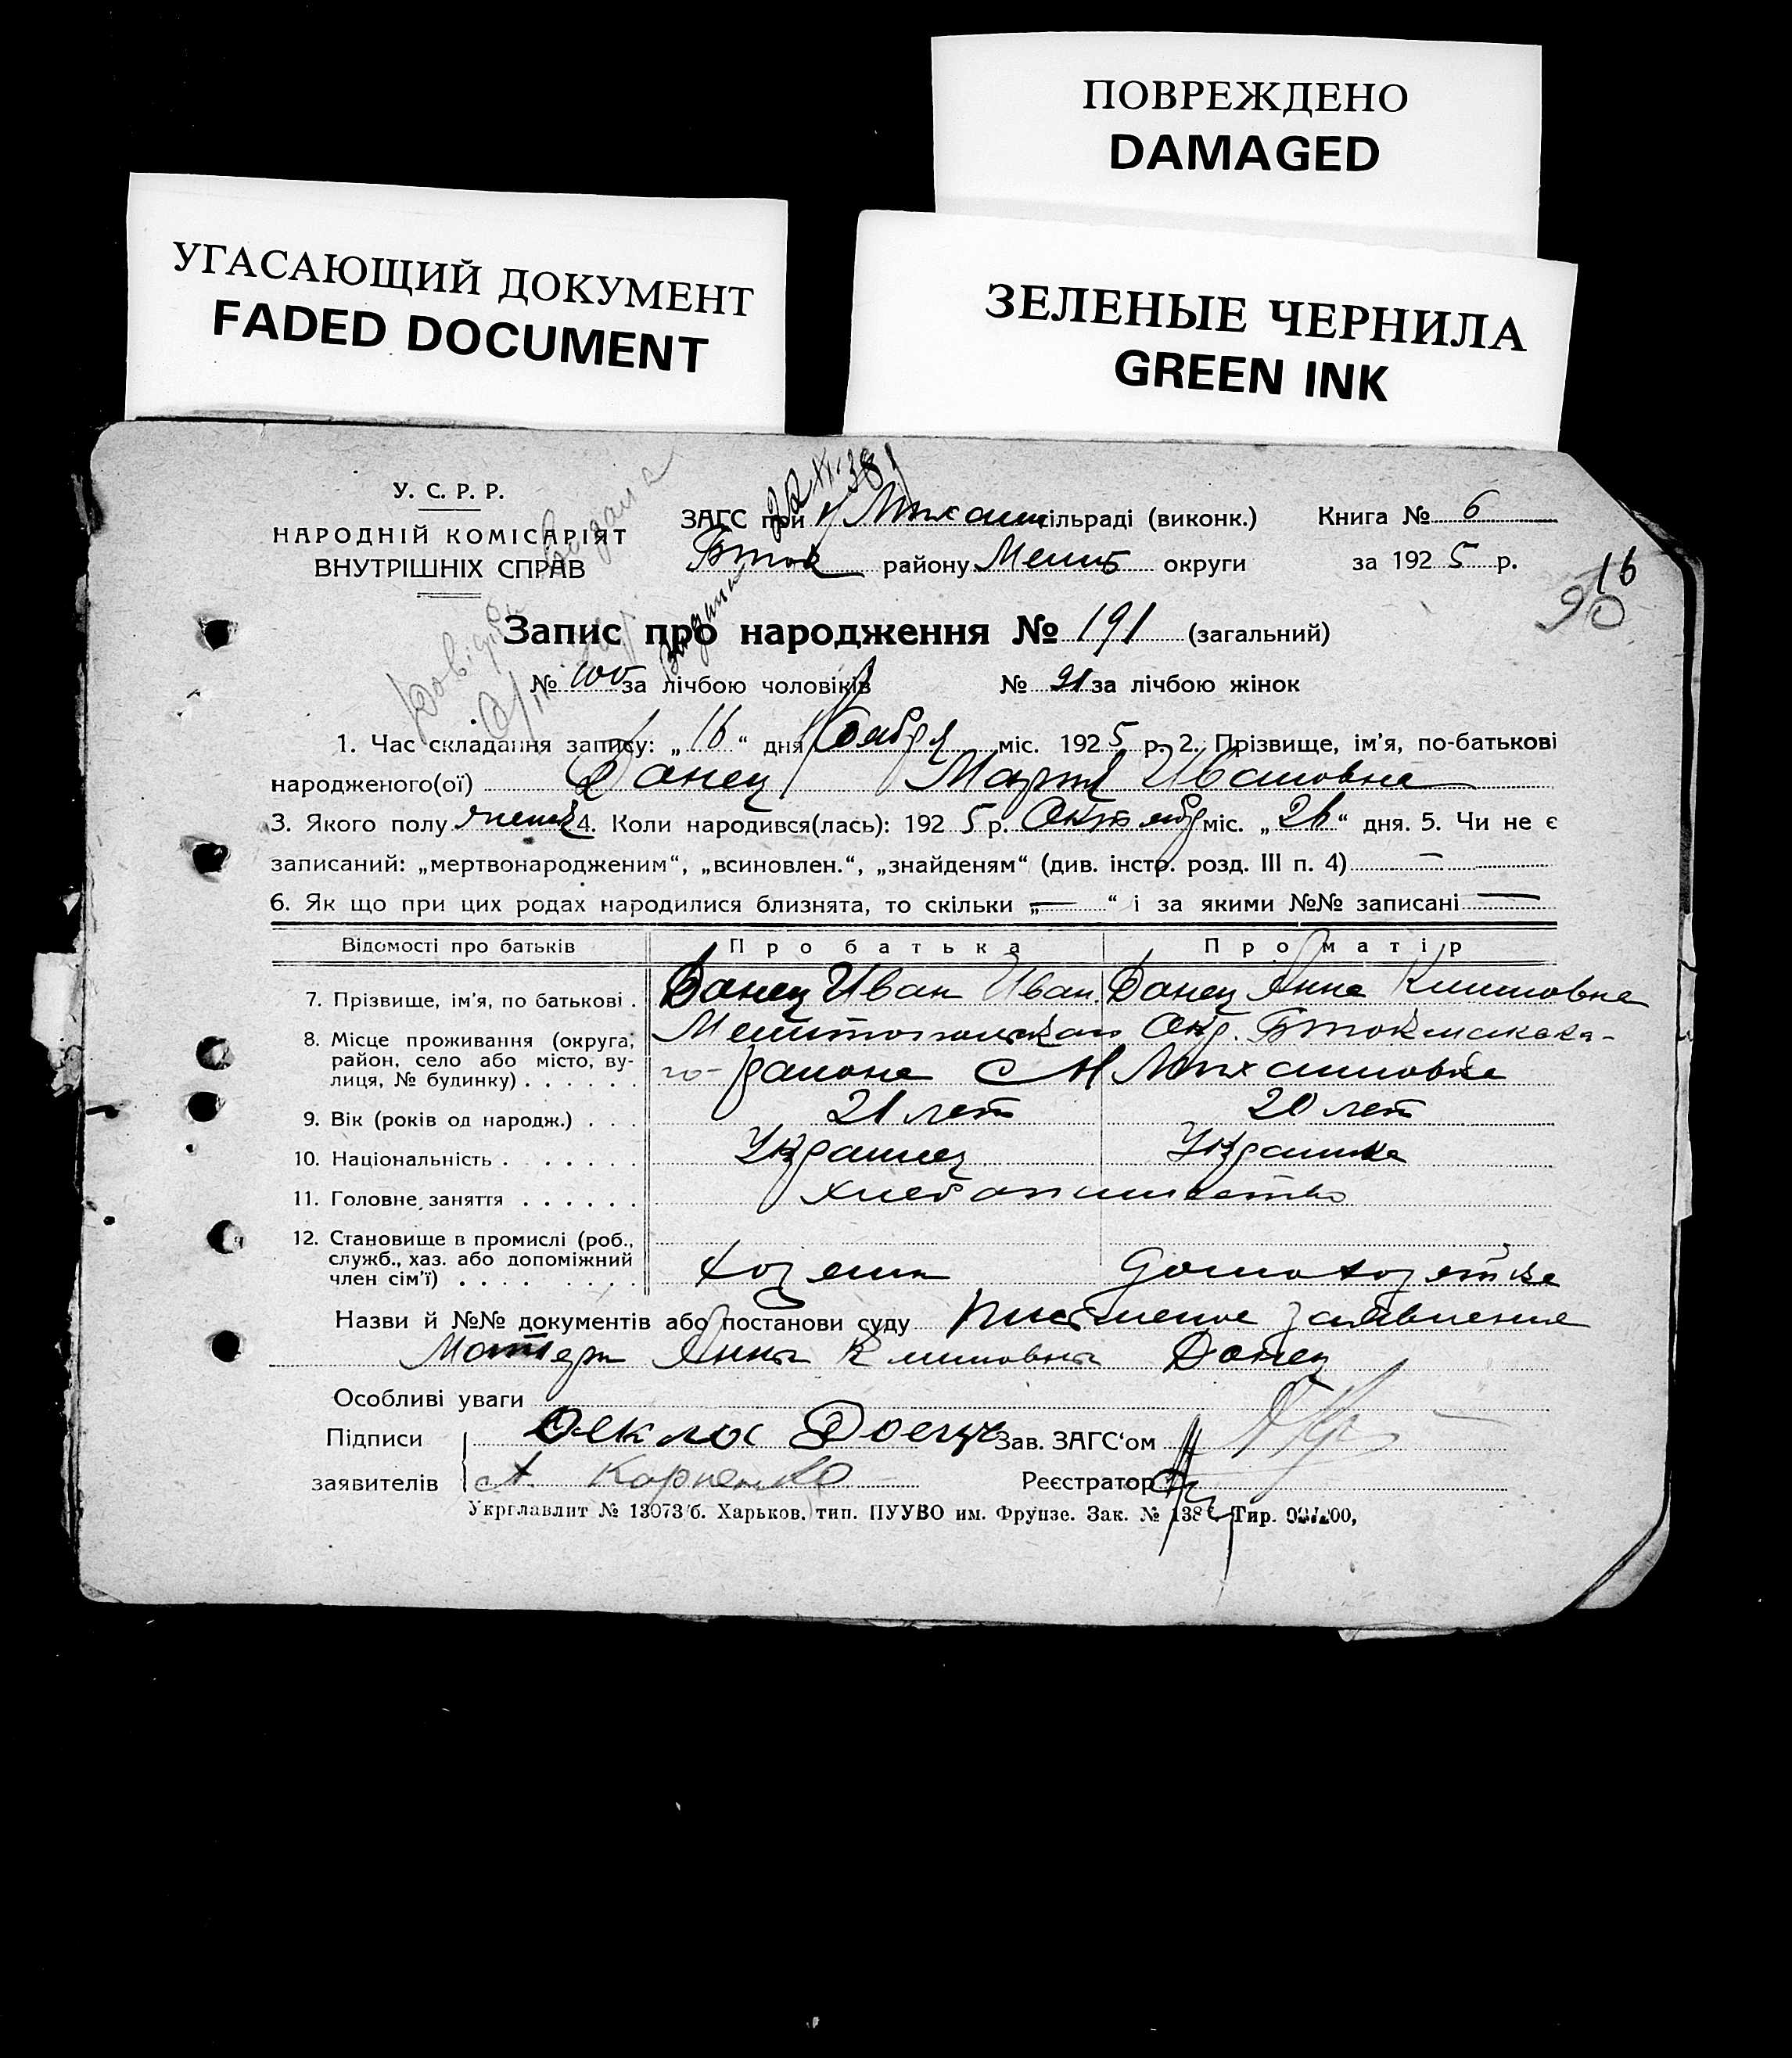 ПОВРЕЖДЕНО
DAMAGED
УГАСАЮЩИЙ ДОКУМЕНТ
FADED DOCUMENT
ЗЕЛЕНЫЕ ЧЕРНИЛА
GREEN INK
У. С. Р. Р.
НАРОДНІЙ КОМІСАРІЯТ
ВНУТРІШНІХ СПРАВ
ЗАГС при сільраді (виконк.) Книга № 6
Бток району Мелит округи за 1925 р.
16
90
Запис про народження № 191 (загальний)
№ 100 за лічбою чоловіків № 91 за лічбою жінок
1. Час складання запису: „16“ дня Ноября міс. 1925 р. 2. Прізвище, ім'я, по-батькові
народженого(ої) Донец Мария Ивановна
3. Якого полу женск 4. Коли народився(лась): 1925 р. Октября міс. „26“ дня. 5. Чи не є
записаний: „мертвонародженим“, „всиновлен.“, „знайденям“ (див. інстр. розд. III п. 4) —
6. Як що при цих родах народилися близнята, то скільки „—“ і за якими №№ записані —
Відомості про батьків Про батька Про матір
7. Прізвище, ім'я, по батькові . Донец Иван Иван. Донец Анна Климовна
8. Місце проживання (округа, район, село або місто, вулиця, № будинку) . . . . . . Мелитопольская Окр. Бтокмакска-
го- района с М Михайловка
9. Вік (років од народж.) . . . 21 лет 20 лет
10. Національність . . . . . . Украинец Украинка
11. Головне заняття . . . . . . хлебопашество
12. Становище в промислі (роб., служб., хаз. або допоміжний член сім'ї) . . . . . . . . хозяин домохозяйка
Назви й №№ документів або постанови суду заявление
Матери Анны Климовны Донец
Особливі уваги
Підписи Зав. ЗАГС'ом
заявителів А Карпенко Реєстратор
Укрглавлит № 13073/б. Харьков, тип. ПУУВО им. Фрунзе. Зак. № Тир.